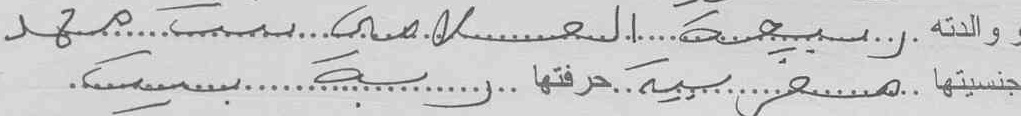 و والدته ربيحة العلامى بنت محمد
جنسيتها مغربية حرفتها ربة بيت